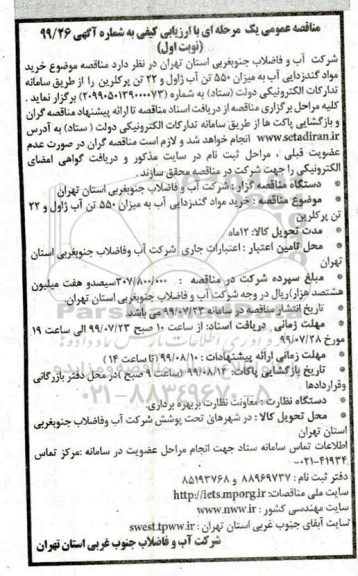 مناقصه عمومی یک مرحله ای با ارزیابی کیفی به شماره آگهی ۹۹/۲۶
(نوبت اول)
شرکت آب و فاضلاب جنوبغربی استان تهران در نظر دارد مناقصه موضوع خرید
مواد گندزدایی آب به میزان ۵۵۰ تن آب ژاول و ۲۲ تن پرکلرین را از طریق سامانه
تدارکات الکترونیکی دولت (ستاد) به شماره (۲۰۹۹۰۵۰۱۳۹۰۰۰۰۷۳) برگزار نماید.
کلیه مراحل برگزاری مناقصه از دریافت اسناد مناقصه تا ارائه پیشنهاد مناقصه گران
و بازگشایی پاکت ها از طریق سامانه تدارکات الکترونیکی دولت ( ستاد) به آدرس
www.setadiran.ir انجام خواهد شد و لازم است مناقصه گران در صورت عدم
عضویت قبلی ، مراحل ثبت نام در سایت مذکور و دریافت گواهی امضای
الکترونیکی را جهت شرکت در مناقصه محقق سازند.
* دستگاه مناقصه گزار : شرکت آب و فاضلاب جنوبغربی استان تهران
* موضوع مناقصه : خرید مواد گندزدایی آب به میزان ۵۵۰ تن آب ژاول و ۲۲
تن پرکلرین
* مدت تحویل کالا: ۱۲ماه
* محل تامین اعتبار : اعتبارات جاری شرکت آب وفاضلاب جنوبغربی استان
تهران
* مبلغ سپرده شرکت در مناقصه : ۳۰۷/۸۰۰/۰۰۰سیصدو هفت میلیون
هشتصد هزار)ریال در وجه شرکت آب و فاضلاب جنوبغربی استان تهران.
* تاریخ انتشار مناقصه در سامانه ۹۹/۰۷/۲۳ می باشد.
* مهلت زمانی دریافت اسناد: از ساعت ۱۰ صبح ۹۹/۰۷/۲۳ الی ساعت ۱۹
مورخ ۹۹/۰۷/۲۸
* مهلت زمانی ارائه پیشنهادات : ۹۹/۰۸/۱۰ (تا ساعت ۱۴ )
* تاریخ بازگشایی پاکات: ۹۹/۰۸/۱۴ (ساعت ۹ صبح )در محل دفتر بازرگانی
وقراردادها
* دستگاه نظارت : معاونت نظارت بربهره برداری.
* محل تحویل کالا : در شهرهای تحت پوشش شرکت آب وفاضلاب جنوبغربی
استان تهران
اطلاعات تماس سامانه ستاد جهت انجام مراحل عضویت در سامانه :مرکز تماس
۰۲۱-۴۱۹۳۴
دفتر ثبت نام : ۸۸۹۶۹۷۳۷ و ۸۵۱۹۳۷۶۸
سایت ملی مناقصات: http://iets.mporg.ir
سایت مهندسی کشور : www.nww.ir
سایت آبفای جنوب غربی استان تهران : swest.tpww.ir
شرکت آب و فاضلاب جنوب غربی استان تهران
۰۲۱-۸۸۳۴۹۶۷۰-۵